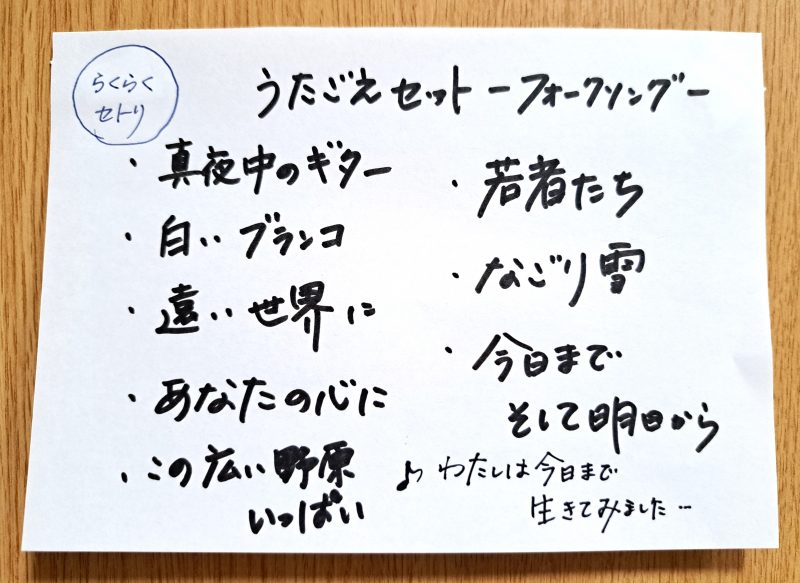 らくらく
セトリ
うたごえセット－フォークソング－
・真夜中のギター
・白いブランコ
・遠い世界に
・あなたの心に
・この広い野原
いっぱい
・若者たち
・なごり雪
・今日まで
そして明日から
♪わたしは今日まで
生きてみました…